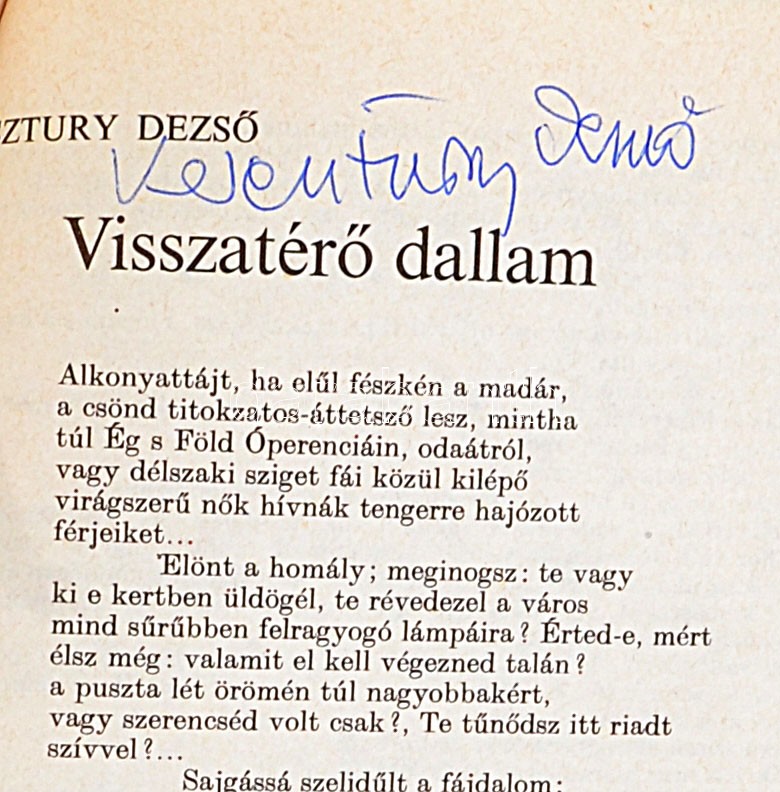 ZTURY DEZSŐ
Keresztury Dezső
Visszatérő dallam
Alkonyattájt, ha elűl fészkén a madár,
a csönd titokzatos-áttetsző lesz, mintha
túl Ég s Föld Óperenciáin, odaátról,
vagy délszaki sziget fái közül kilépő
virágszerű nők hívnák tengerre hajózott
férjeiket...
Elönt a homály; meginogsz: te vagy
ki e kertben üldögél, te révedezel a város
mind sűrűbben felragyogó lámpáira? Érted-e, mért
élsz még: valamit el kell végezned talán?
a puszta lét örömén túl nagyobbakért,
vagy szerencséd volt csak?, Te tűnődsz itt riadt
szívvel?...
Sajgássá szelidűlt a fájdalom: